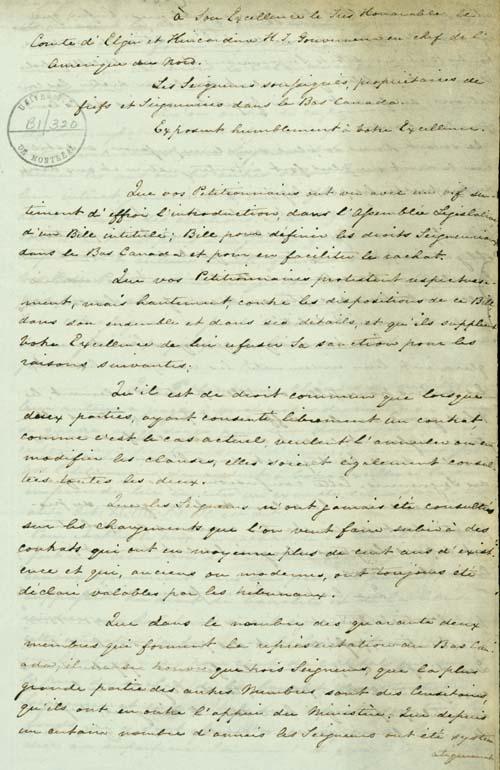 à Son Excellence le Très Honorable, le
Comte d'Elgin et Kincardine H. J. Gouverneur en chef de l'
Amérique du Nord.
Les Seigneurs soussignés, propriétaires de
fiefs et Seigneuries dans le Bas Canada.
Exposent humblement à Votre Excellence.
UNIVERSITÉ
B1/320
DE MONTRÉAL
Que vos Petitionnaires ont vu avec un vif sen-
timent d'effroi l'introduction, dans l'Assemblée Législative
d'un Bill intitulé; Bill pour définir les droits Seigneuriaux
dans le Bas Canada et pour en faciliter le rachat.
Que vos Petitionnaires protestent respectueu-
ment, mais hautement, contre les dispositions de ce Bill
dans son ensemble et dans ses détails, et qu'ils supplient
Votre Excellence de lui refuser Sa sanction pour les
raisons suivantes:
Qu'il est de droit commun que lorsque
deux parties, ayant consenti librement un contrat
comme c'est le cas actuel veulent l'annuler ou en
modifier les clauses, elles soient également consul
tées toutes les deux.
Que les Seigneurs n'ont jamais été consultés
sur les changements que l'on veut faire subir à des
contrats qui ont en moyenne plus de cent ans d'exist
ence et qui, anciens ou modernes, ont toujours été
déclaré valables par les tribunaux.
Que dans le nombre des quarante deux
membres qui forment la représentation du Bas Can
ada, il ne se trouve que trois Seigneurs, que la plus
grande partie des autres Membres sont des Censitaires,
qu'ils ont en outre l'appui du Ministère; Que depuis
un certain nombre d'années les Seigneurs ont été systé